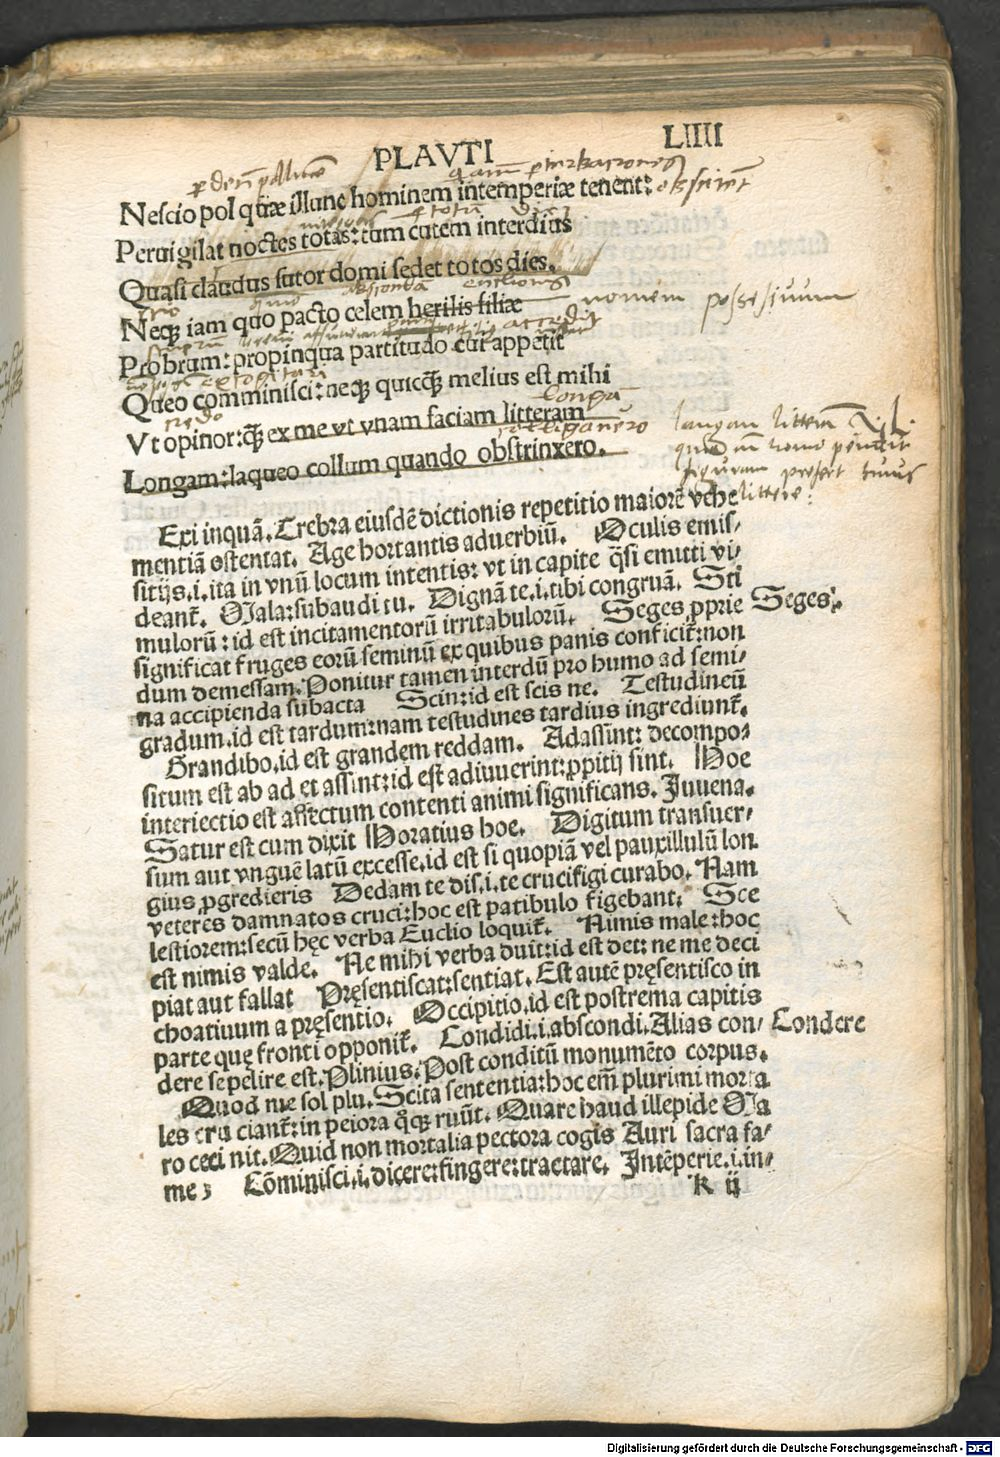 PLAVTI LIIII
Nescio pol quæ illunc hominem intemperiæ tenent:
Peruigilat noctes totas: tum cutem interdius
Quasi claudus sutor domi sedet totos dies.
Neqꝫ iam quo pacto celem herilis filiæ
nomem possesiuum
Probrum: propinqua partitudo cui appetit
Queo comminisci: neqꝫ quicqꝫ melius est mihi
longa
Vt opinor: qꝫ ex me vt vnam faciam litteram
Longam: laqueo collum quando obstrinxero.
longam litteram
figuram
littere:
Exi inquā. Crebra eiusdē dictionis repetitio maiorē vehe
mentiā ostentat. Age hortantis aduerbiū. Oculis emis/
sitijs .i. ita in vnū locum intentis: vt in capite q̄si emitti vi/
deant̄. Mala: subaudi tu. Dignā te .i. tibi congruā. Sti
mulorū: id est incitamentorū irritabulorū. Seges ꝓprie
Seges.
significat fruges eorū seminū ex quibus panis conficit̄: non
dum demessam. Ponitur tamen interdū pro humo ad semi/
na accipienda subacta Scin: id est scis ne. Testudineū
gradum .id est tardum: nam testudines tardius ingrediunt̄.
Grandibo, id est grandem reddam. Adassint: decompo/
situm est ab ad et assint: id est adiuuerint: ꝓpitij sint. Hoe
interiectio est affectum contenti animi significans. Iuuena.
Satur est cum dixit Horatius hoe. Digitum transuer/
sum aut vnguē latū excesse, id est si quopiā vel pauxillulū lon
gius ꝓgredieris Dedam te dis .i. te crucifigi curabo. Nam
veteres damnatos cruci: hoc est patibulo figebant. Sce
lestiorem: secū hęc verba Euclio loquit̄. Nimis male: hoc
est nimis valde. Ne mihi verba duit: id est det: ne me deci
piat aut fallat Pręsentiscat: sentiat. Est autē pręsentisco in
choatiuum a pręsentio. Occipitio, id est postrema capitis
parte quę fronti opponit̄. Condidi .i. abscondi. Alias con/
Condere
dere sepelire est. Plinius. Post conditū monumēto corpus.
Quod me sol plu. Scita sententia: hoc em̄ plurimi morta
les cruciant̄: in peiora qꝫ ruūt. Quare haud illepide Ma
ro cecinit. Quid non mortalia pectora cogis Auri sacra fa/
me; Cōminisci .i. dicere: fingere: tractare. Intēperie .i. in/
k ij
Digitalisierung gefördert durch die Deutsche Forschungsgemeinschaft - DFG